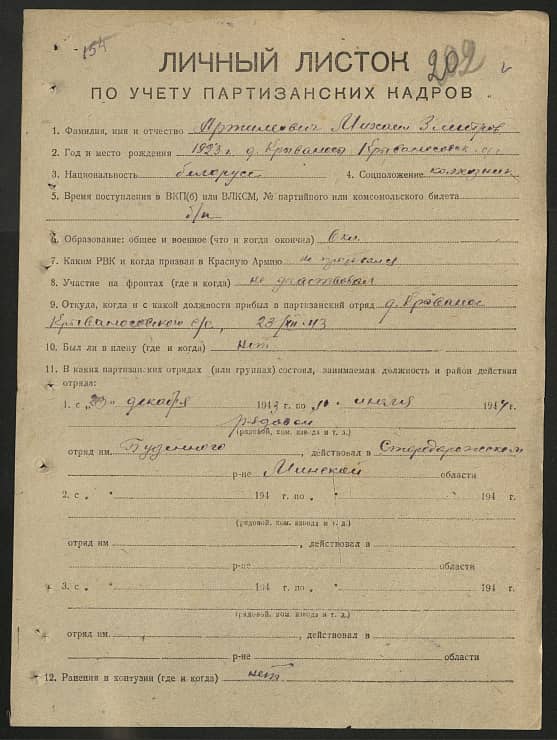 154
202
ЛИЧНЫЙ ЛИСТОК
ПО УЧЕТУ ПАРТИЗАНСКИХ КАДРОВ
1. Фамилия, имя и отчество Михаил
2. Год и место рождения 1923 г. д.
3. Национальность белорусс 4. Соцположение колхозник
5. Время поступления в ВКП(б) или ВЛКСМ, № партийного или комсомольского билета
б/п
6. Образование: общее и военное (что и когда окончил) 6 кл.
7. Каким РВК и когда призван в Красную Армию не призывался
8. Участие на фронтах (где и когда) не участвовал
9. Откуда, когда и с какой должности прибыл в партизанский отряд д.
с/с, 43
10. Был ли в плену (где и когда) нет
11. В каких партизанских отрядах (или группах) состоял, занимаемая должность и район действия
отряда:
1. с „ " декабря 1943 г. по „ " 1944 г.
рядовой
(рядовой, ком. взвода и т. д.)
отряд им. Буденного, действовал в Стародорожском
р-не Минской области
2. с „ " 194 г. по „ " 194 г.
(рядовой, ком. взвода и т. д.)
отряд им , действовал в
р-не области
3. с „ " 194 г. по „ " 194 г.
(рядовой, ком. взвода и т. д.)
отряд им. , действовал в
р-не области
12. Ранения и контузии (где и когда) нет